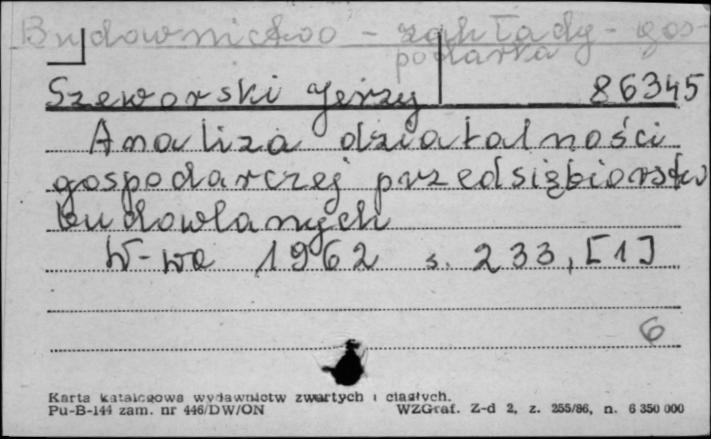 Budownictwo - zakłady - gos-
podarka
Szeworski Jerzy 86345
Analiza działalności
gospodarczej przedsiębiorstw
budowlanych
W-wa 1962 s. 233, [1]
6
Karta katalogowa wydawnictw zwartych i ciągłych.
Pu-B-144 zam. nr 446/DW/ON WZGraf. Z-d 2, z. 255/86, n. 6 350 000